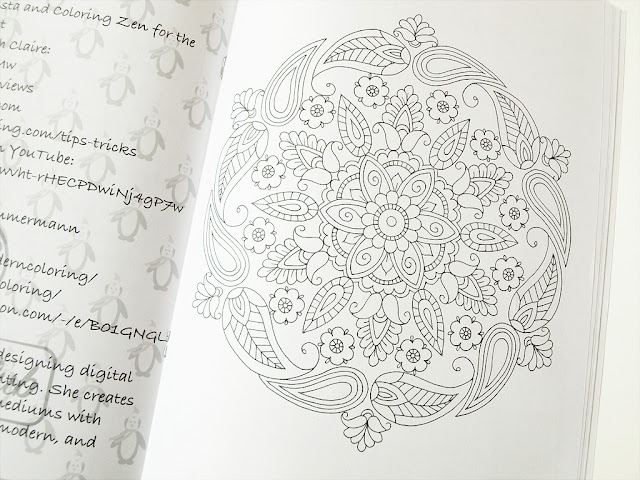 sta and Coloring Zen for the
t
n Claire:
views
om
ing.com/tips-tricks
n YouTube:
wht-rHECPDwiNj4gP7w
mmermann
derncoloring/
oloring/
on.com/-/e/B01GNGL
designing digital
nting. She creates
mediums with
modern, and